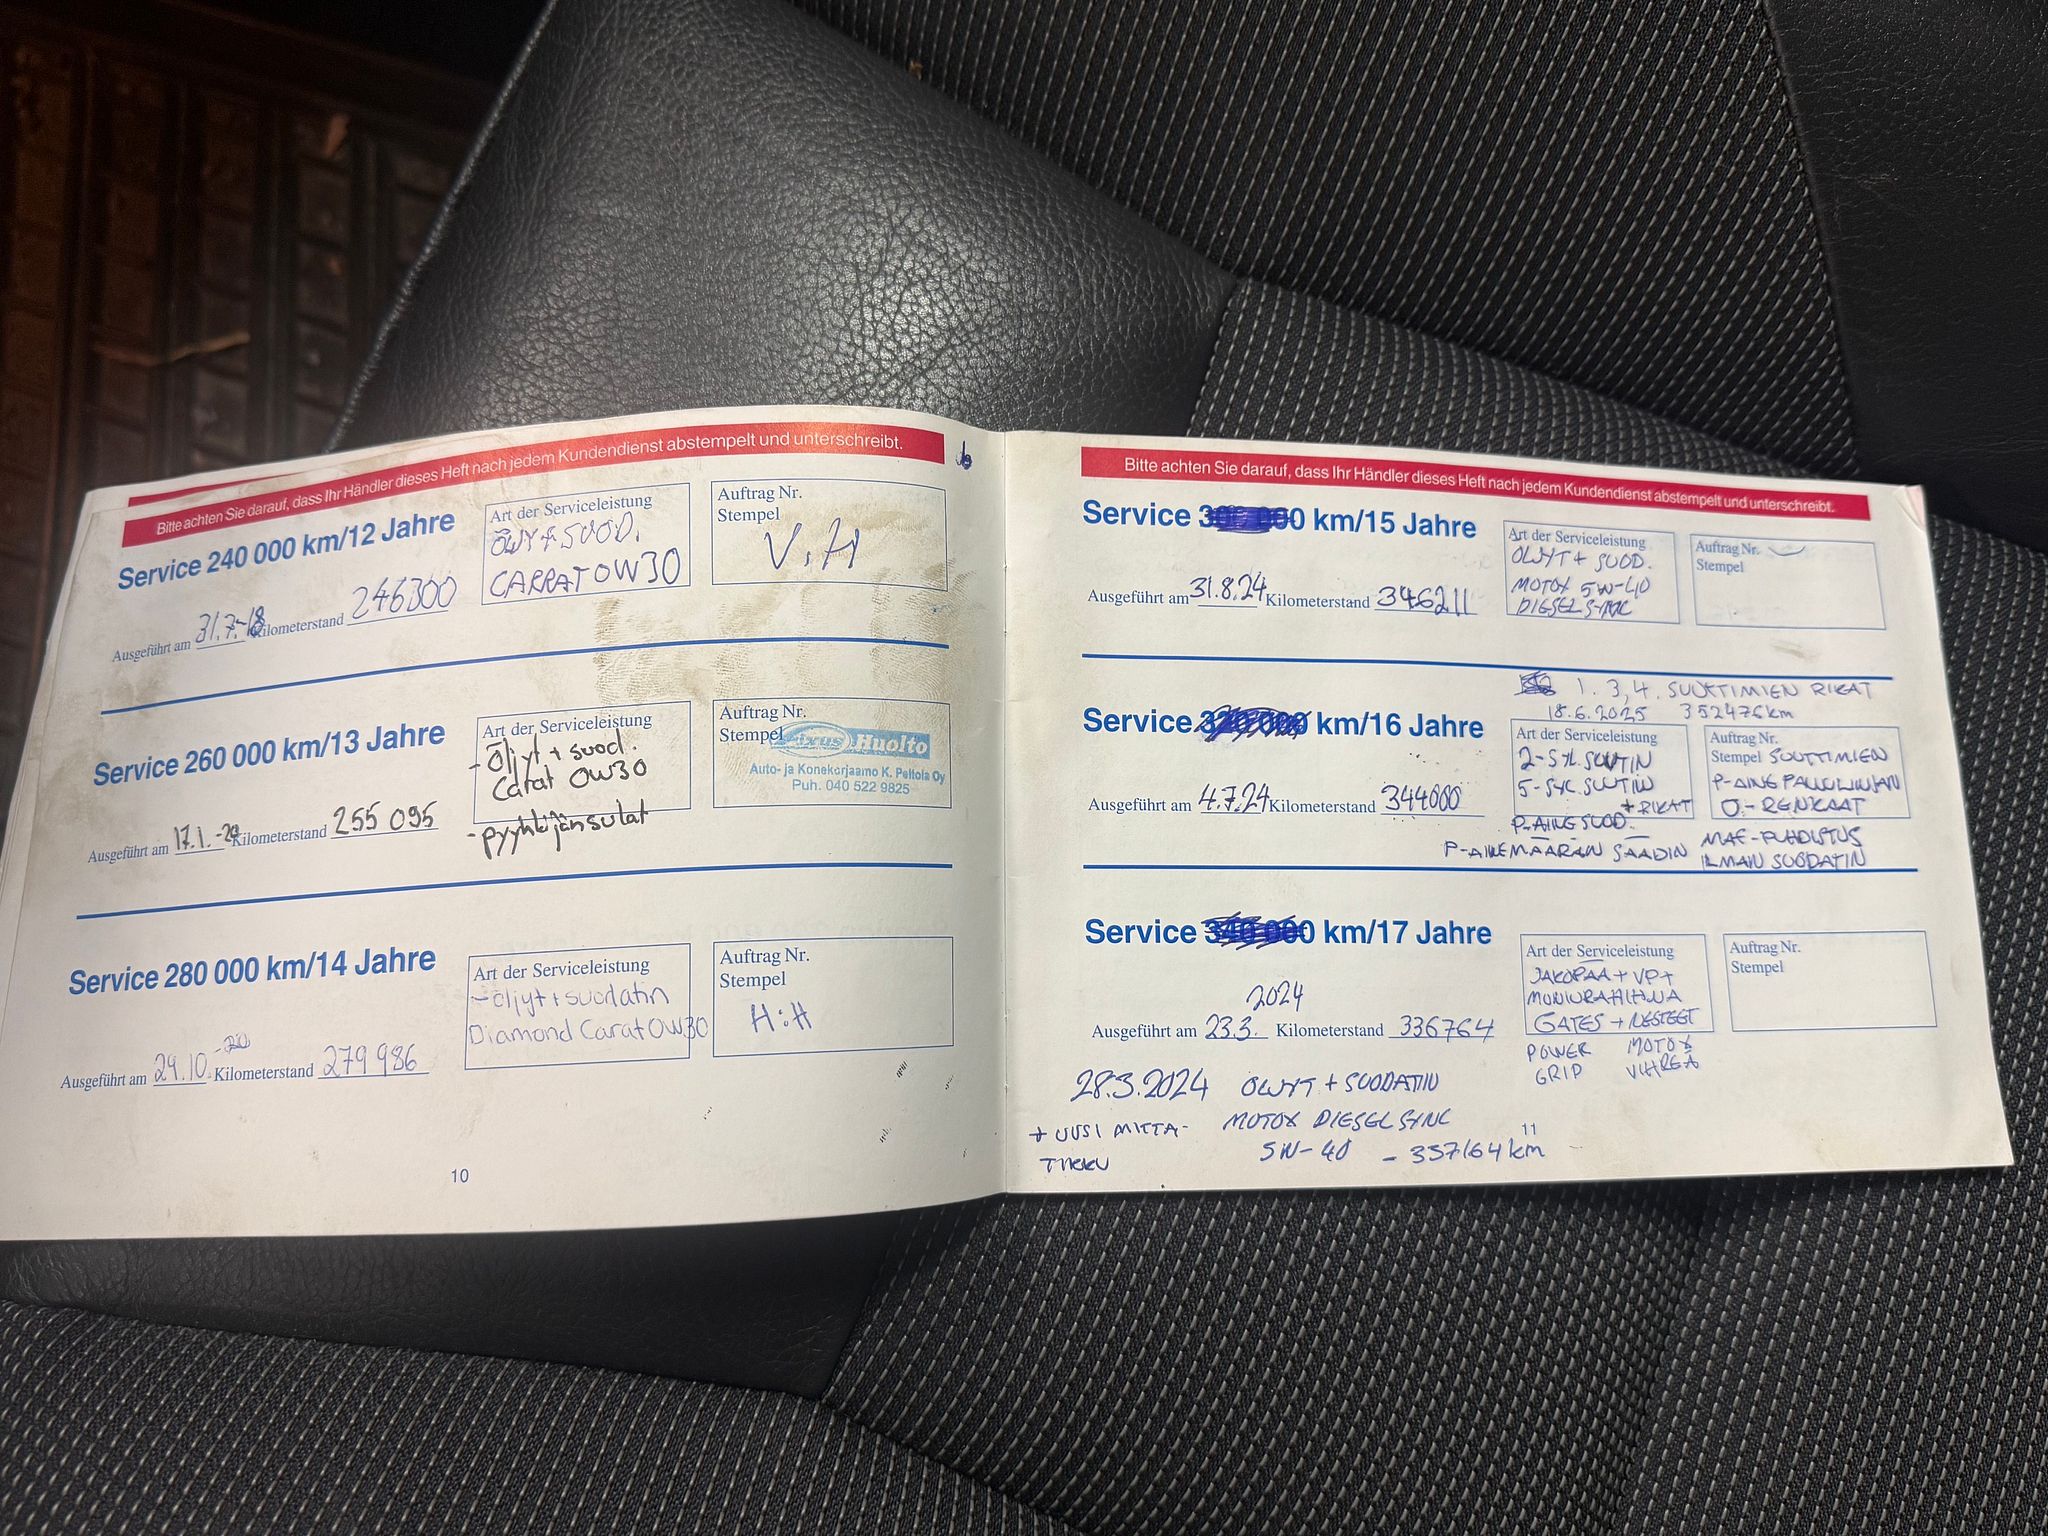 Bitte achten Sie darauf, dass Ihr Händler dieses Heft nach jedem Kundendienst abstempelt und unterschreibt.
Service 240 000 km/12 Jahre
Art der Serviceleistung
ÖLJYT + SUOD.
CARRAT 0W30
Auftrag Nr.
Stempel
V.H
Ausgeführt am 31.7.-18 Kilometerstand 246300
Service 260 000 km/13 Jahre
Art der Serviceleistung
- Öljyt + suod.
Carat 0W30
- pyyhkijänsulat
Auftrag Nr.
Stempel
Fixus Huolto
Auto- ja Konekorjaamo K. Peltola Oy
Puh. 040 522 9825
Ausgeführt am 17.1.-20 Kilometerstand 255 095
Service 280 000 km/14 Jahre
Art der Serviceleistung
- öljyt + suodatin
Diamond Carat 0W30
Auftrag Nr.
Stempel
H:H
Ausgeführt am 29.10.-20 Kilometerstand 279 986
10
Bitte achten Sie darauf, dass Ihr Händler dieses Heft nach jedem Kundendienst abstempelt und unterschreibt.
Service 300 000 km/15 Jahre
Art der Serviceleistung
ÖLJYT + SUOD.
MOTOX 5W-40
DIESEL SYNC
Auftrag Nr.
Stempel
Ausgeführt am 31.8.24 Kilometerstand 346211
1. 3, 4. SUUTTIMIEN RIKAT
18.6.2025 352476km
Service 320 000 km/16 Jahre
Art der Serviceleistung
2-SYL.SUUTIN
5-SYL SUUTIN
+ RIKAT
P-AINESUOD.
P-AINEMÄÄRÄN SÄÄDIN
Auftrag Nr.
Stempel SUUTTIMIEN
P-AINE PALUULINJAN
O-RENKAAT
MAF-PUHDISTUS
ILMAN SUODATIN
Ausgeführt am 4.7.24 Kilometerstand 344000
Service 340 000 km/17 Jahre
Art der Serviceleistung
JAKOPÄÄ + VP+
MONIURAHIHNA
GATES + NESTEET
POWER GRIP
MOTOX VIHREÄ
Auftrag Nr.
Stempel
2024
Ausgeführt am 23.3. Kilometerstand 336764
28.3.2024 ÖLJYT + SUODATIN
+ UUSI MITTA-
TIKKU
MOTOX DIESEL SYNC
5W-40 - 337164km
11